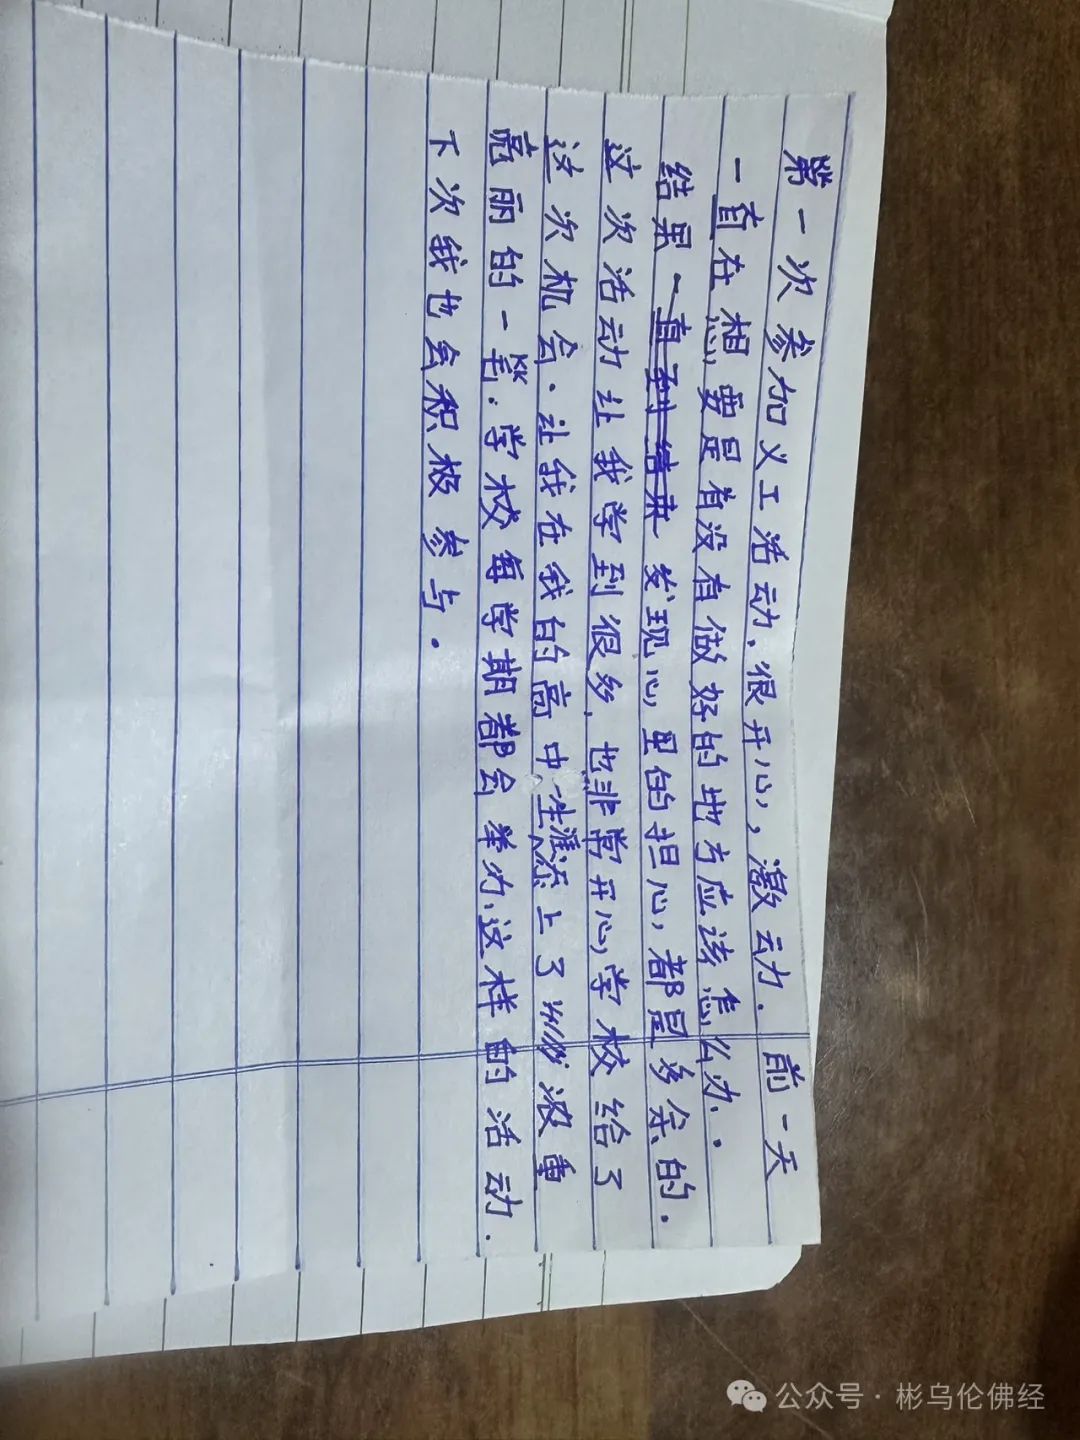 第一次参加义工活动，很开心，激动．前一天
一直在想，要是有没有做好的地方应该怎么办．．
结果一直到结束发现心里的担心，都是多余的．
这次活动让我学到很多．也非常开心，学校给了
这次机会．让我在我的高中生涯添上了浓重
亮丽的一笔．学校每学期都会举办这样的活动．
下次我也会积极参与．
公众号·彬乌伦佛经